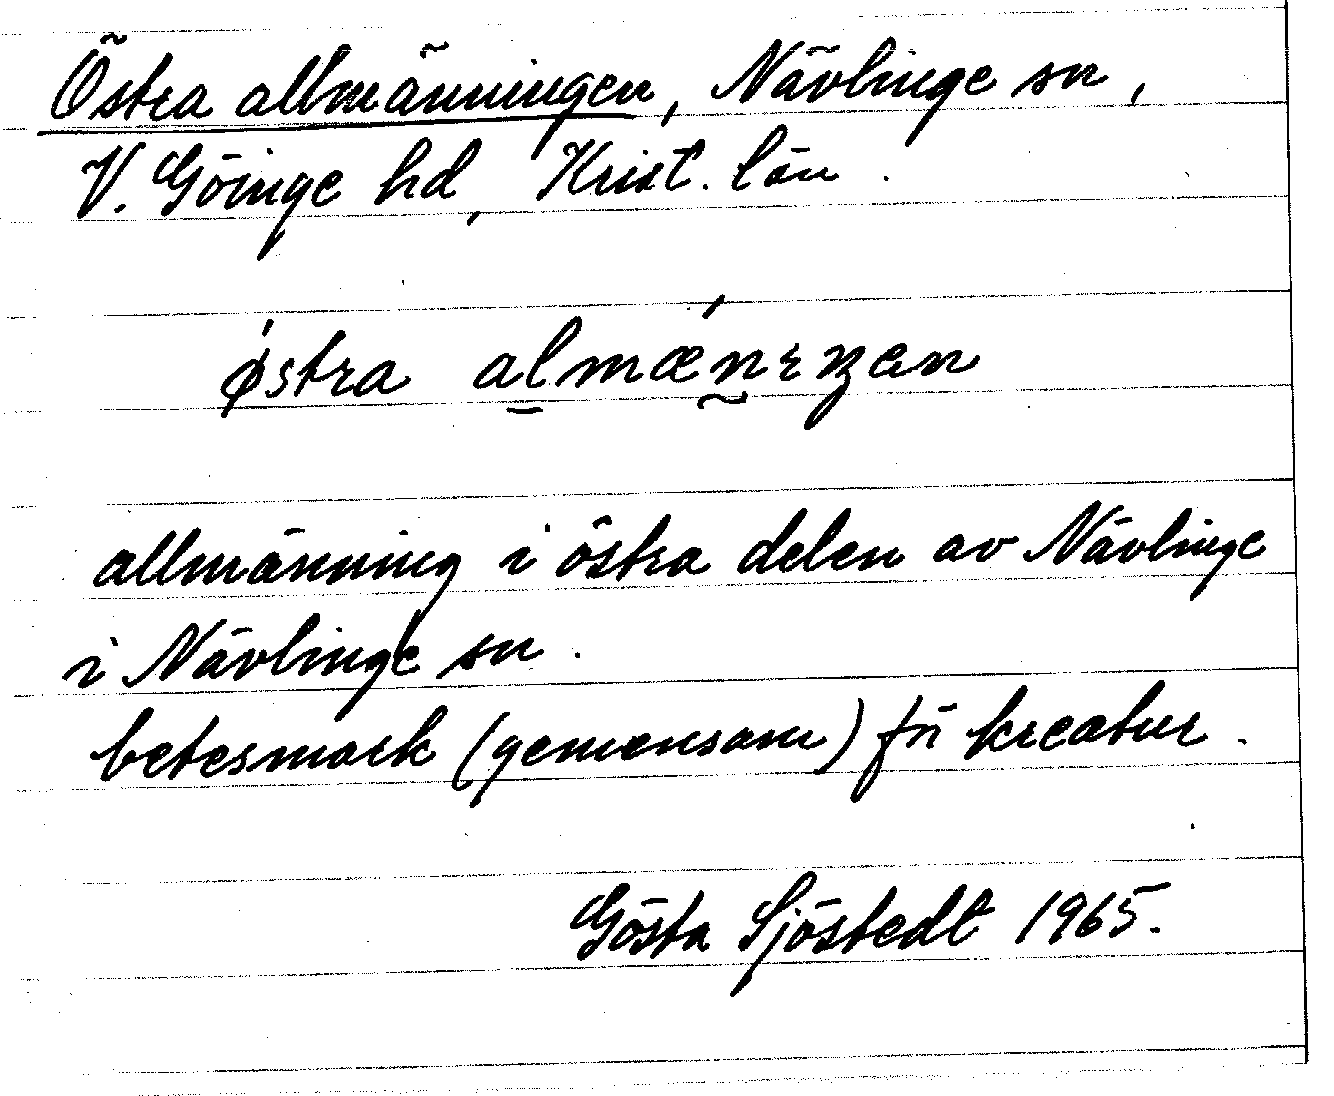 Östra allmänningen, Nävlinge sn,
V. Göinge hd, Krist. län.
østra almænıŋen
allmänning i östra delen av Nävlinge
i Nävlinge sn.
betesmark (gemensam) för kreatur.
Gösta Sjöstedt 1965.